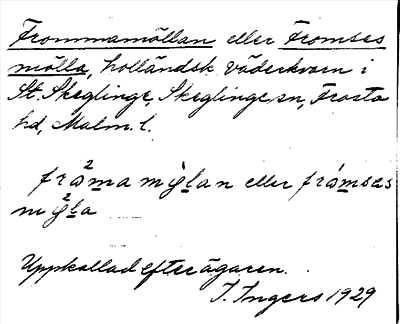 Frommamöllan eller Fromses
mölla, holländsk väderkvarn i
St. Skeglinge, Skeglinge sn, Frosta
hd, Malm. l.
frå²ma mỳlan eller fråmsas
mỳ²la
Uppkallad efter ägaren.
I. Ingers 1929